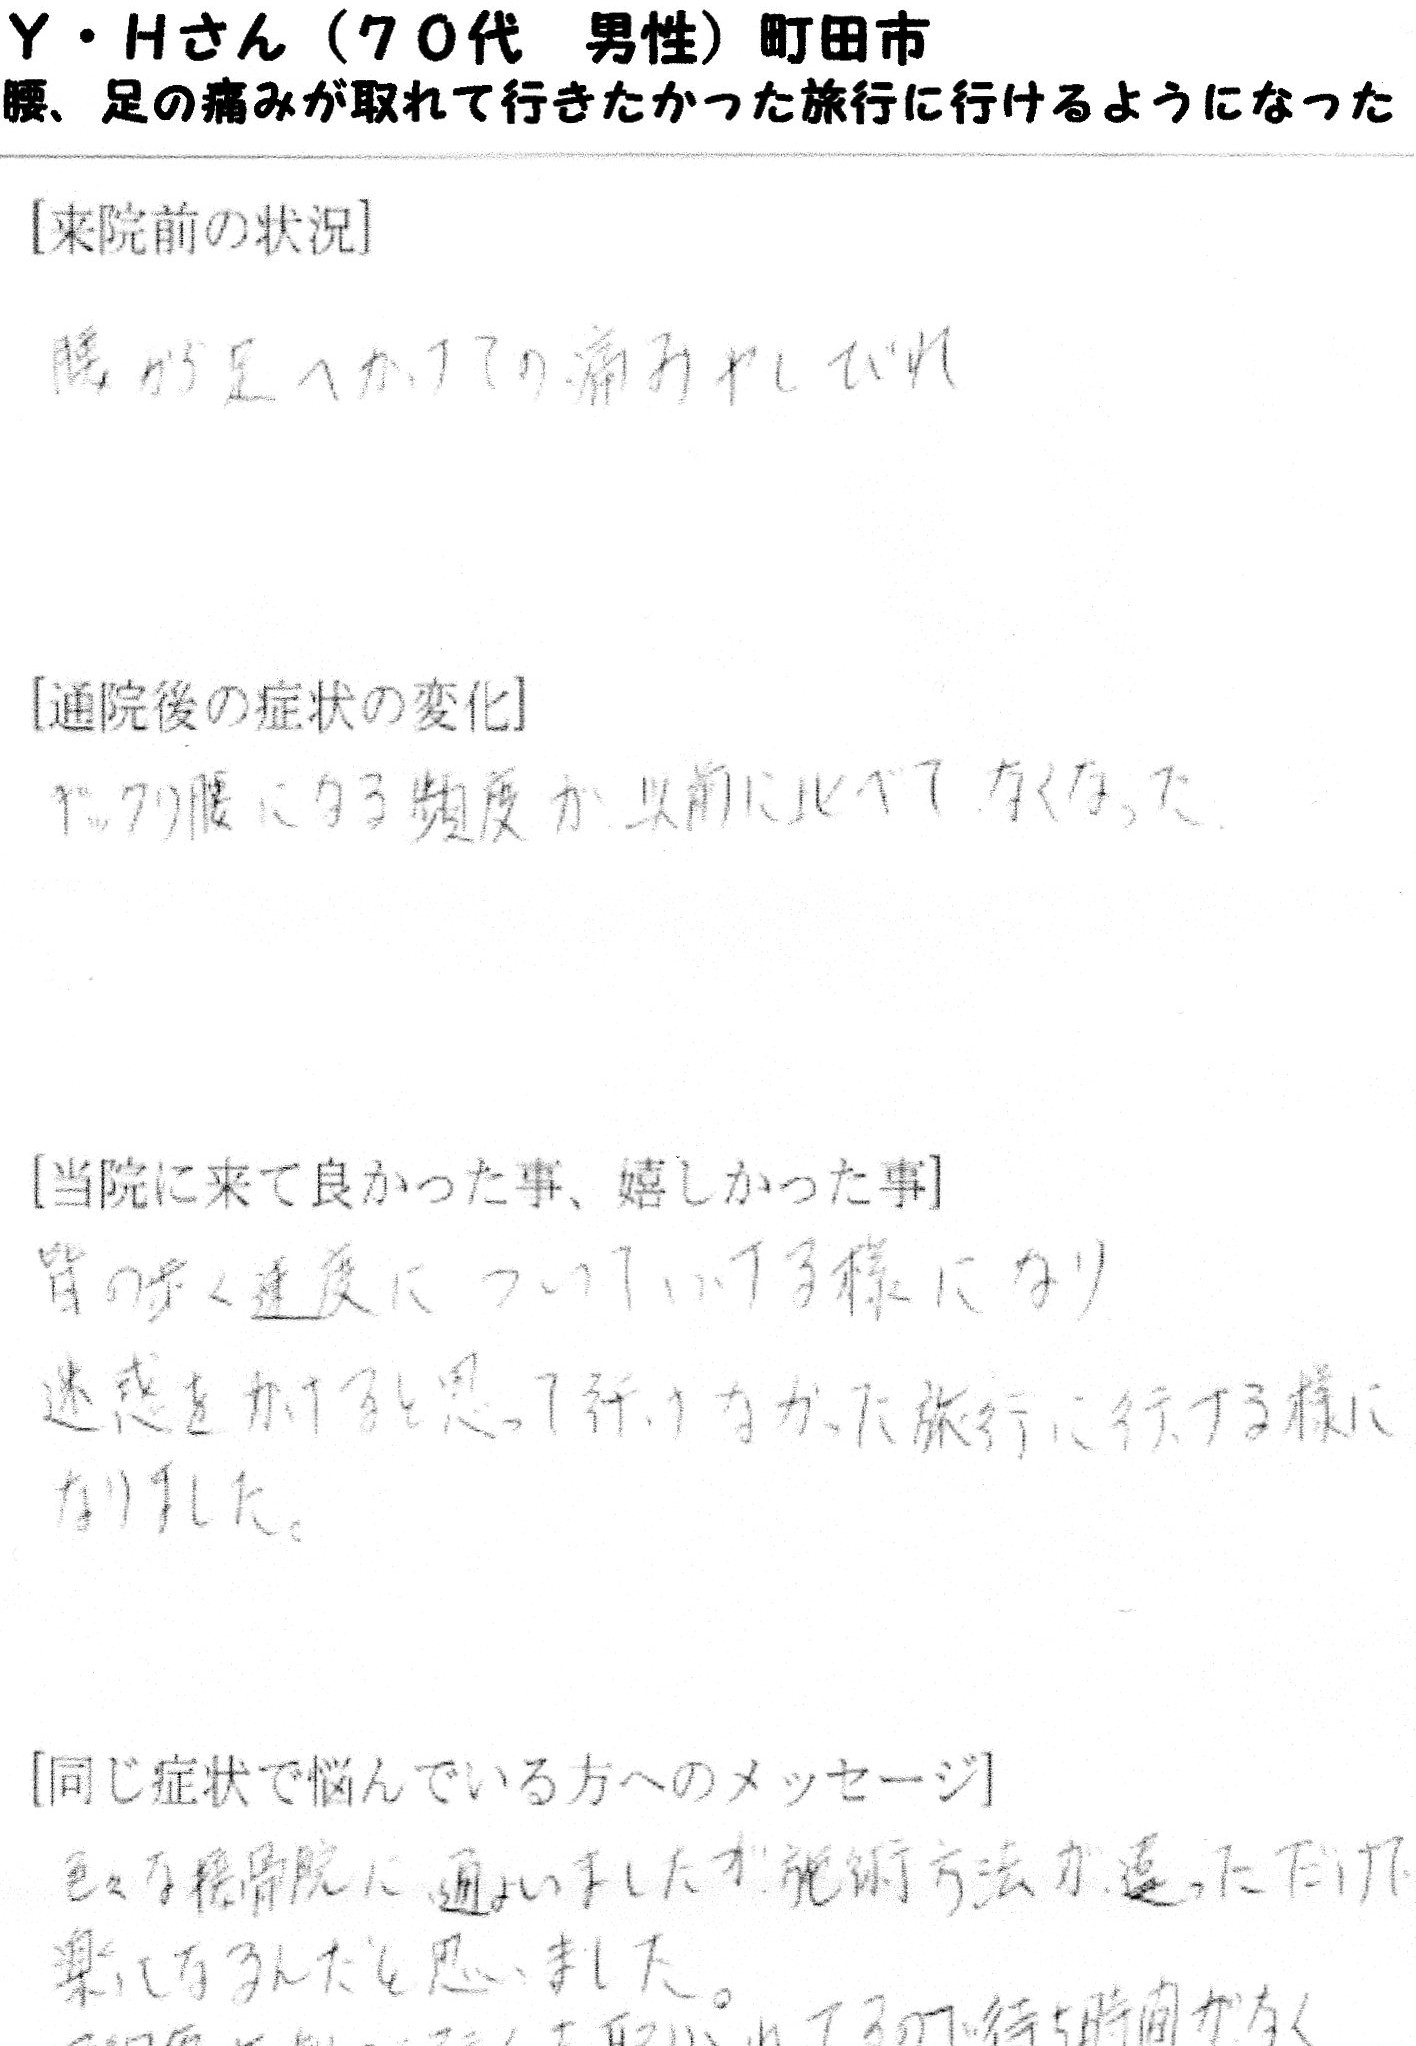 Y・Hさん（７０代　男性）町田市
腰、足の痛みが取れて行きたかった旅行に行けるようになった
[来院前の状況]
腰から足へかけての痛みやしびれ
[通院後の症状の変化]
ギックリ腰になる頻度が以前に比べてなくなった
[当院に来て良かった事、嬉しかった事]
皆の歩く速度についていける様になり
迷惑をかけると思って行けなかった旅行に行ける様に
なりました。
[同じ症状で悩んでいる方へのメッセージ]
色々な接骨院に通いましたが施術方法が違っただけで
楽になるんだと思いました。
取り入れてるので待ち時間がなく